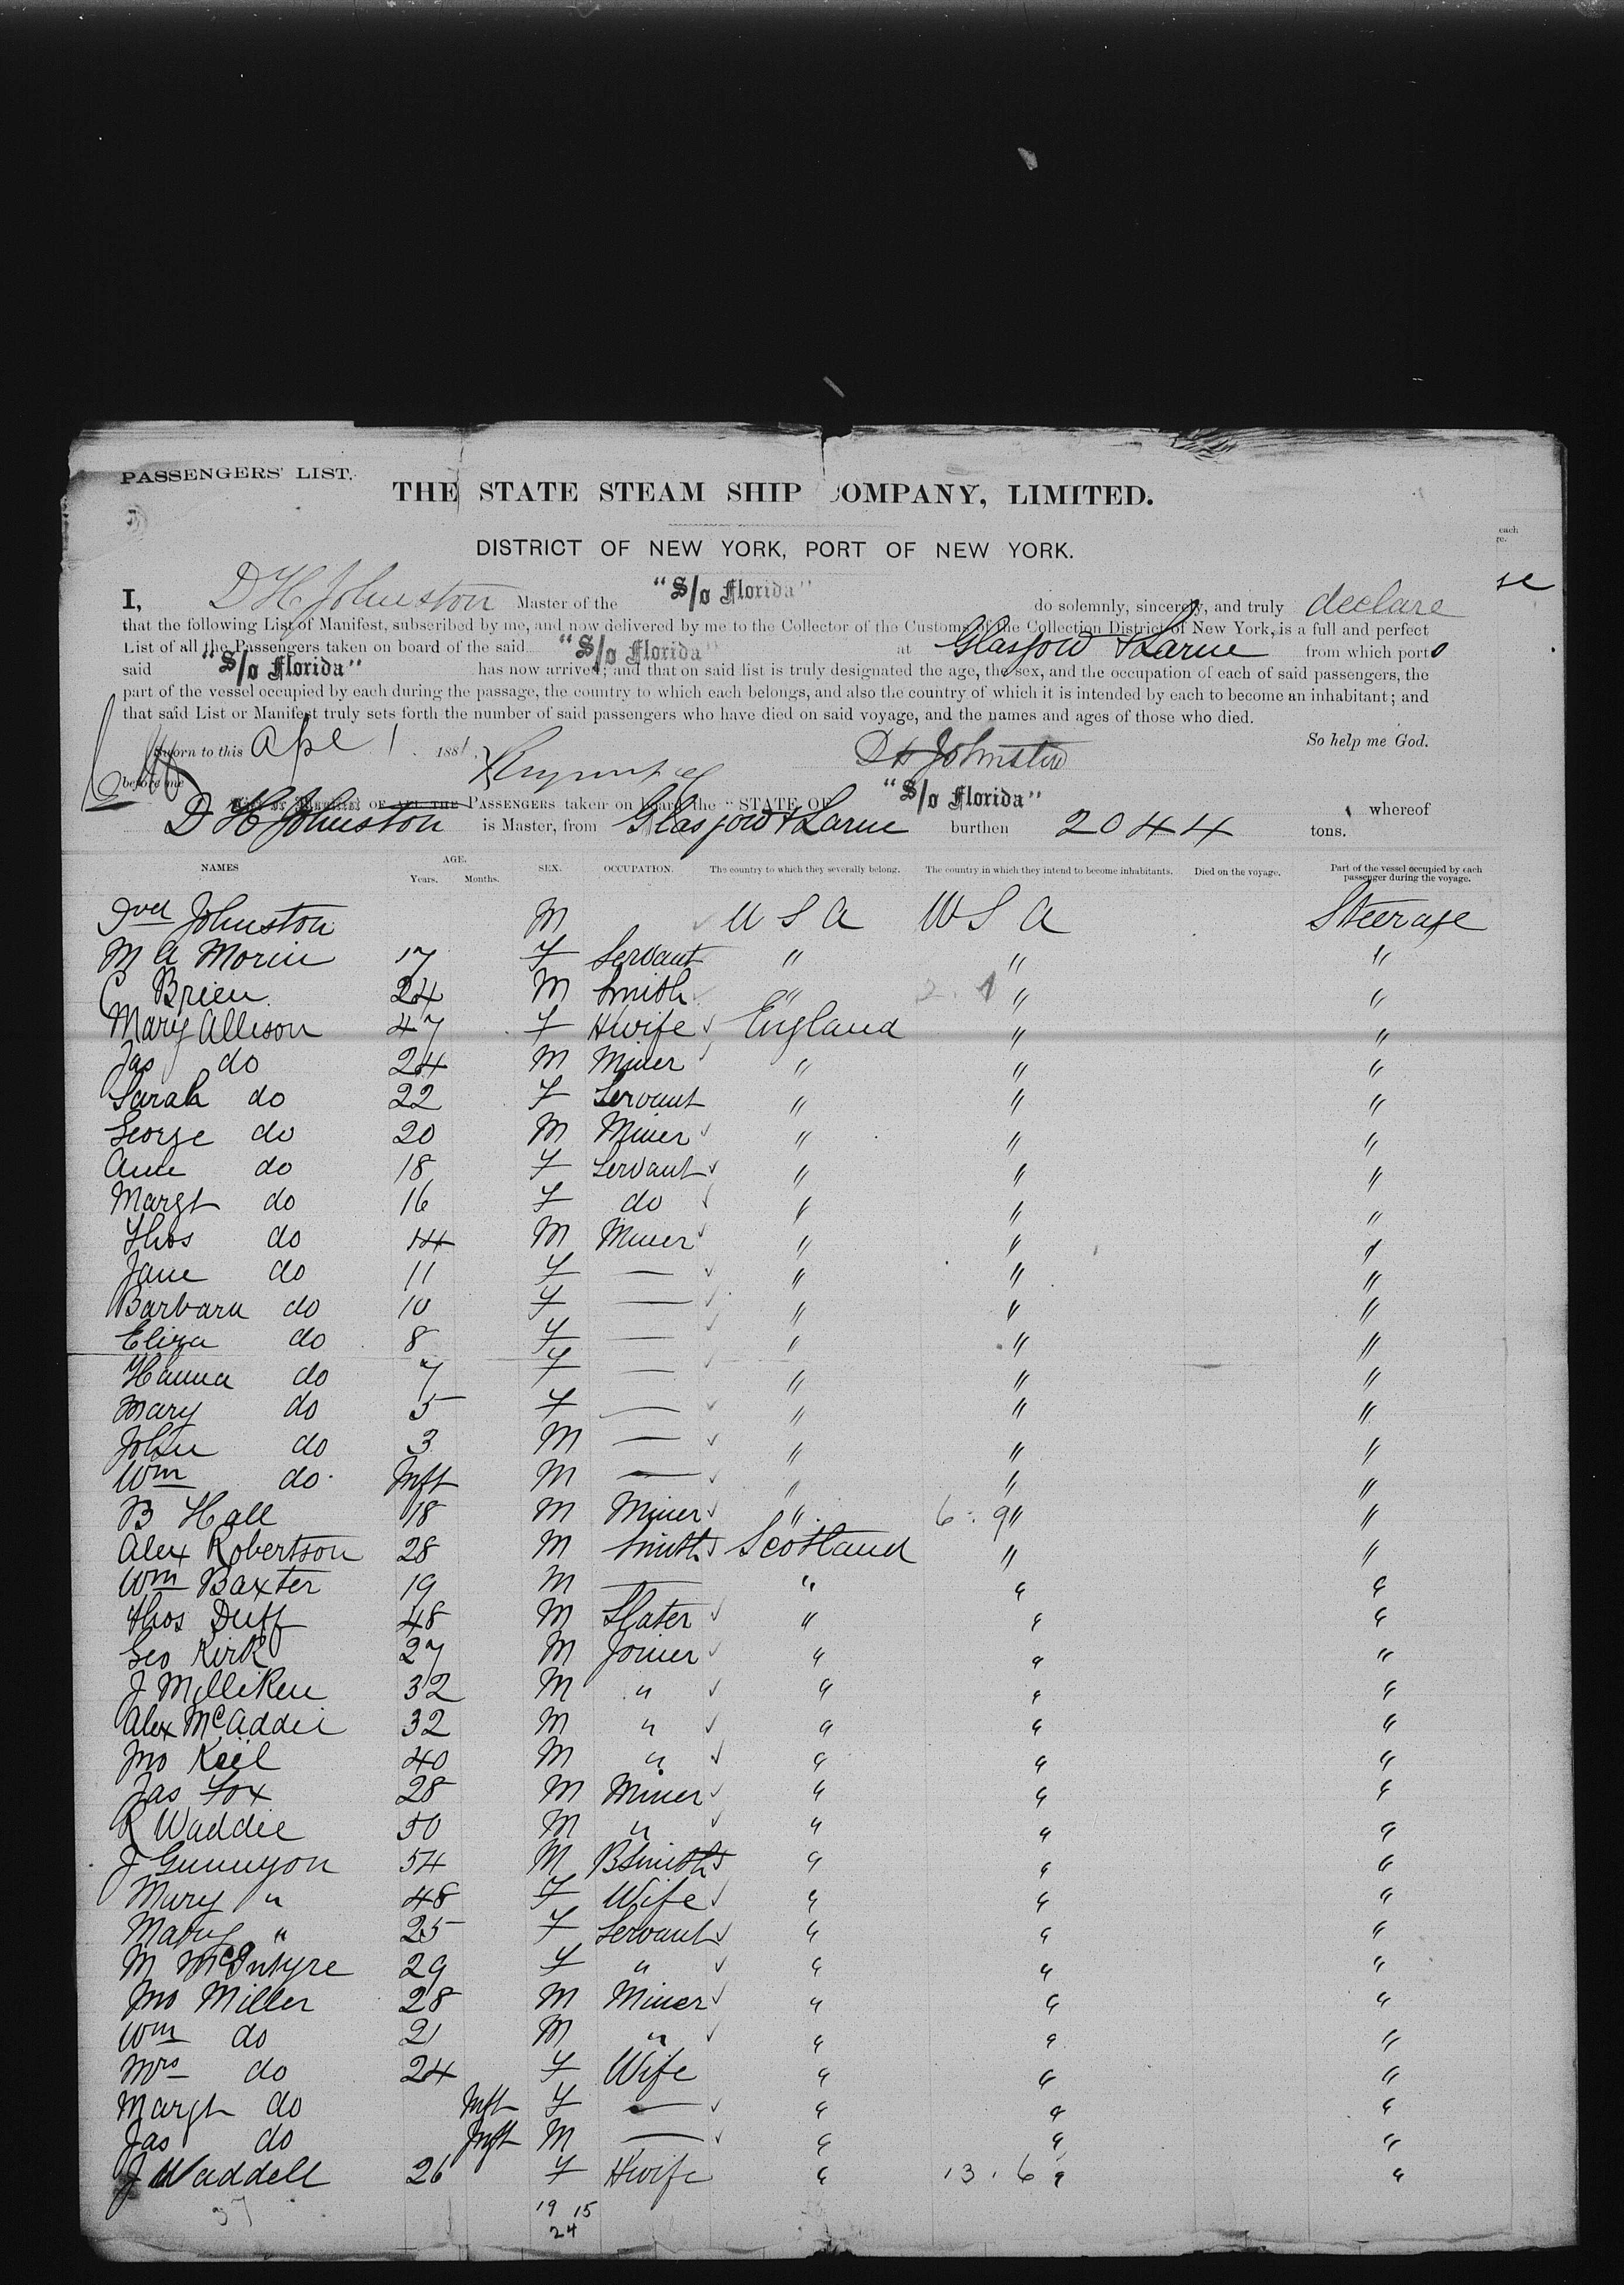 PASSENGERS' LIST.
THE STATE STEAM SHIP COMPANY, LIMITED.
DISTRICT OF NEW YORK, PORT OF NEW YORK.
each
re.
se
I, D H Johnston Master of the "S/o Florida" do solemnly, sincerely, and truly declare
that the following List of Manifest, subscribed by me, and now delivered by me to the Collector of the Customs of the Collection District of New York, is a full and perfect
List of all the Passengers taken on board of the said "S/o Florida" at Glasgow & Larne from which ports
said "S/o Florida" has now arrived; and that on said list is truly designated the age, the sex, and the occupation of each of said passengers, the
part of the vessel occupied by each during the passage, the country to which each belongs, and also the country of which it is intended by each to become an inhabitant; and
that said List or Manifest truly sets forth the number of said passengers who have died on said voyage, and the names and ages of those who died.
So help me God.
Sworn to this Apl 1 1881
D H Johnston
before me
List or Manifest OF ALL THE PASSENGERS taken on board the "STATE OF "S/o Florida" whereof
D H Johnston is Master, from Glasgow & Larne burthen 2044 tons.
NAMES AGE. Years. Months. SEX. OCCUPATION. The country to which they severally belong. The country in which they intend to become inhabitants. Died on the voyage. Part of the vessel occupied by each passenger during the voyage.
Johnston M U S A U S A Steerage
M A Morin 17 F Servant " " "
C Brien 24 M Smith " " "
Mary Allison 47 F Hwife England " "
Jas do 24 M Miner " " "
Sarah do 22 F Servant " " "
George do 20 M Miner " " "
Ann do 18 F Servant " " "
Margt do 16 F do " " "
Thos do 14 M Miner " " "
Jane do 11 F — " " "
Barbara do 10 F — " " "
Eliza do 8 F — " " "
Hanna do 7 F — " " "
Mary do 5 F — " " "
John do 3 M — " " "
Wm do Inft M — " " "
B Hall 18 M Miner " 6 : 9 " "
Alex Robertson 28 M Smith Scotland " "
Wm Baxter 19 M — " " "
Thos Duff 48 M Slater " " "
Geo Kirk 27 M Joiner " " "
J Milliken 32 M " " " "
Alex McAddie 32 M " " " "
Jno Keil 40 M " " " "
Jas Fox 28 M Miner " " "
R Waddie 50 M " " " "
J Gunnyon 54 M BSmith " " "
Mary " 48 F Wife " " "
Mary " 25 F Servant " " "
M McIntyre 29 F " " " "
Jno Miller 28 M Miner " " "
Wm do 21 M " " " "
Mrs do 24 F Wife " " "
Margt do Inft F — " " "
Jas do Inft M — " " "
J Waddell 26 F Hwife " 13 . 6 " "
37
19 15
24